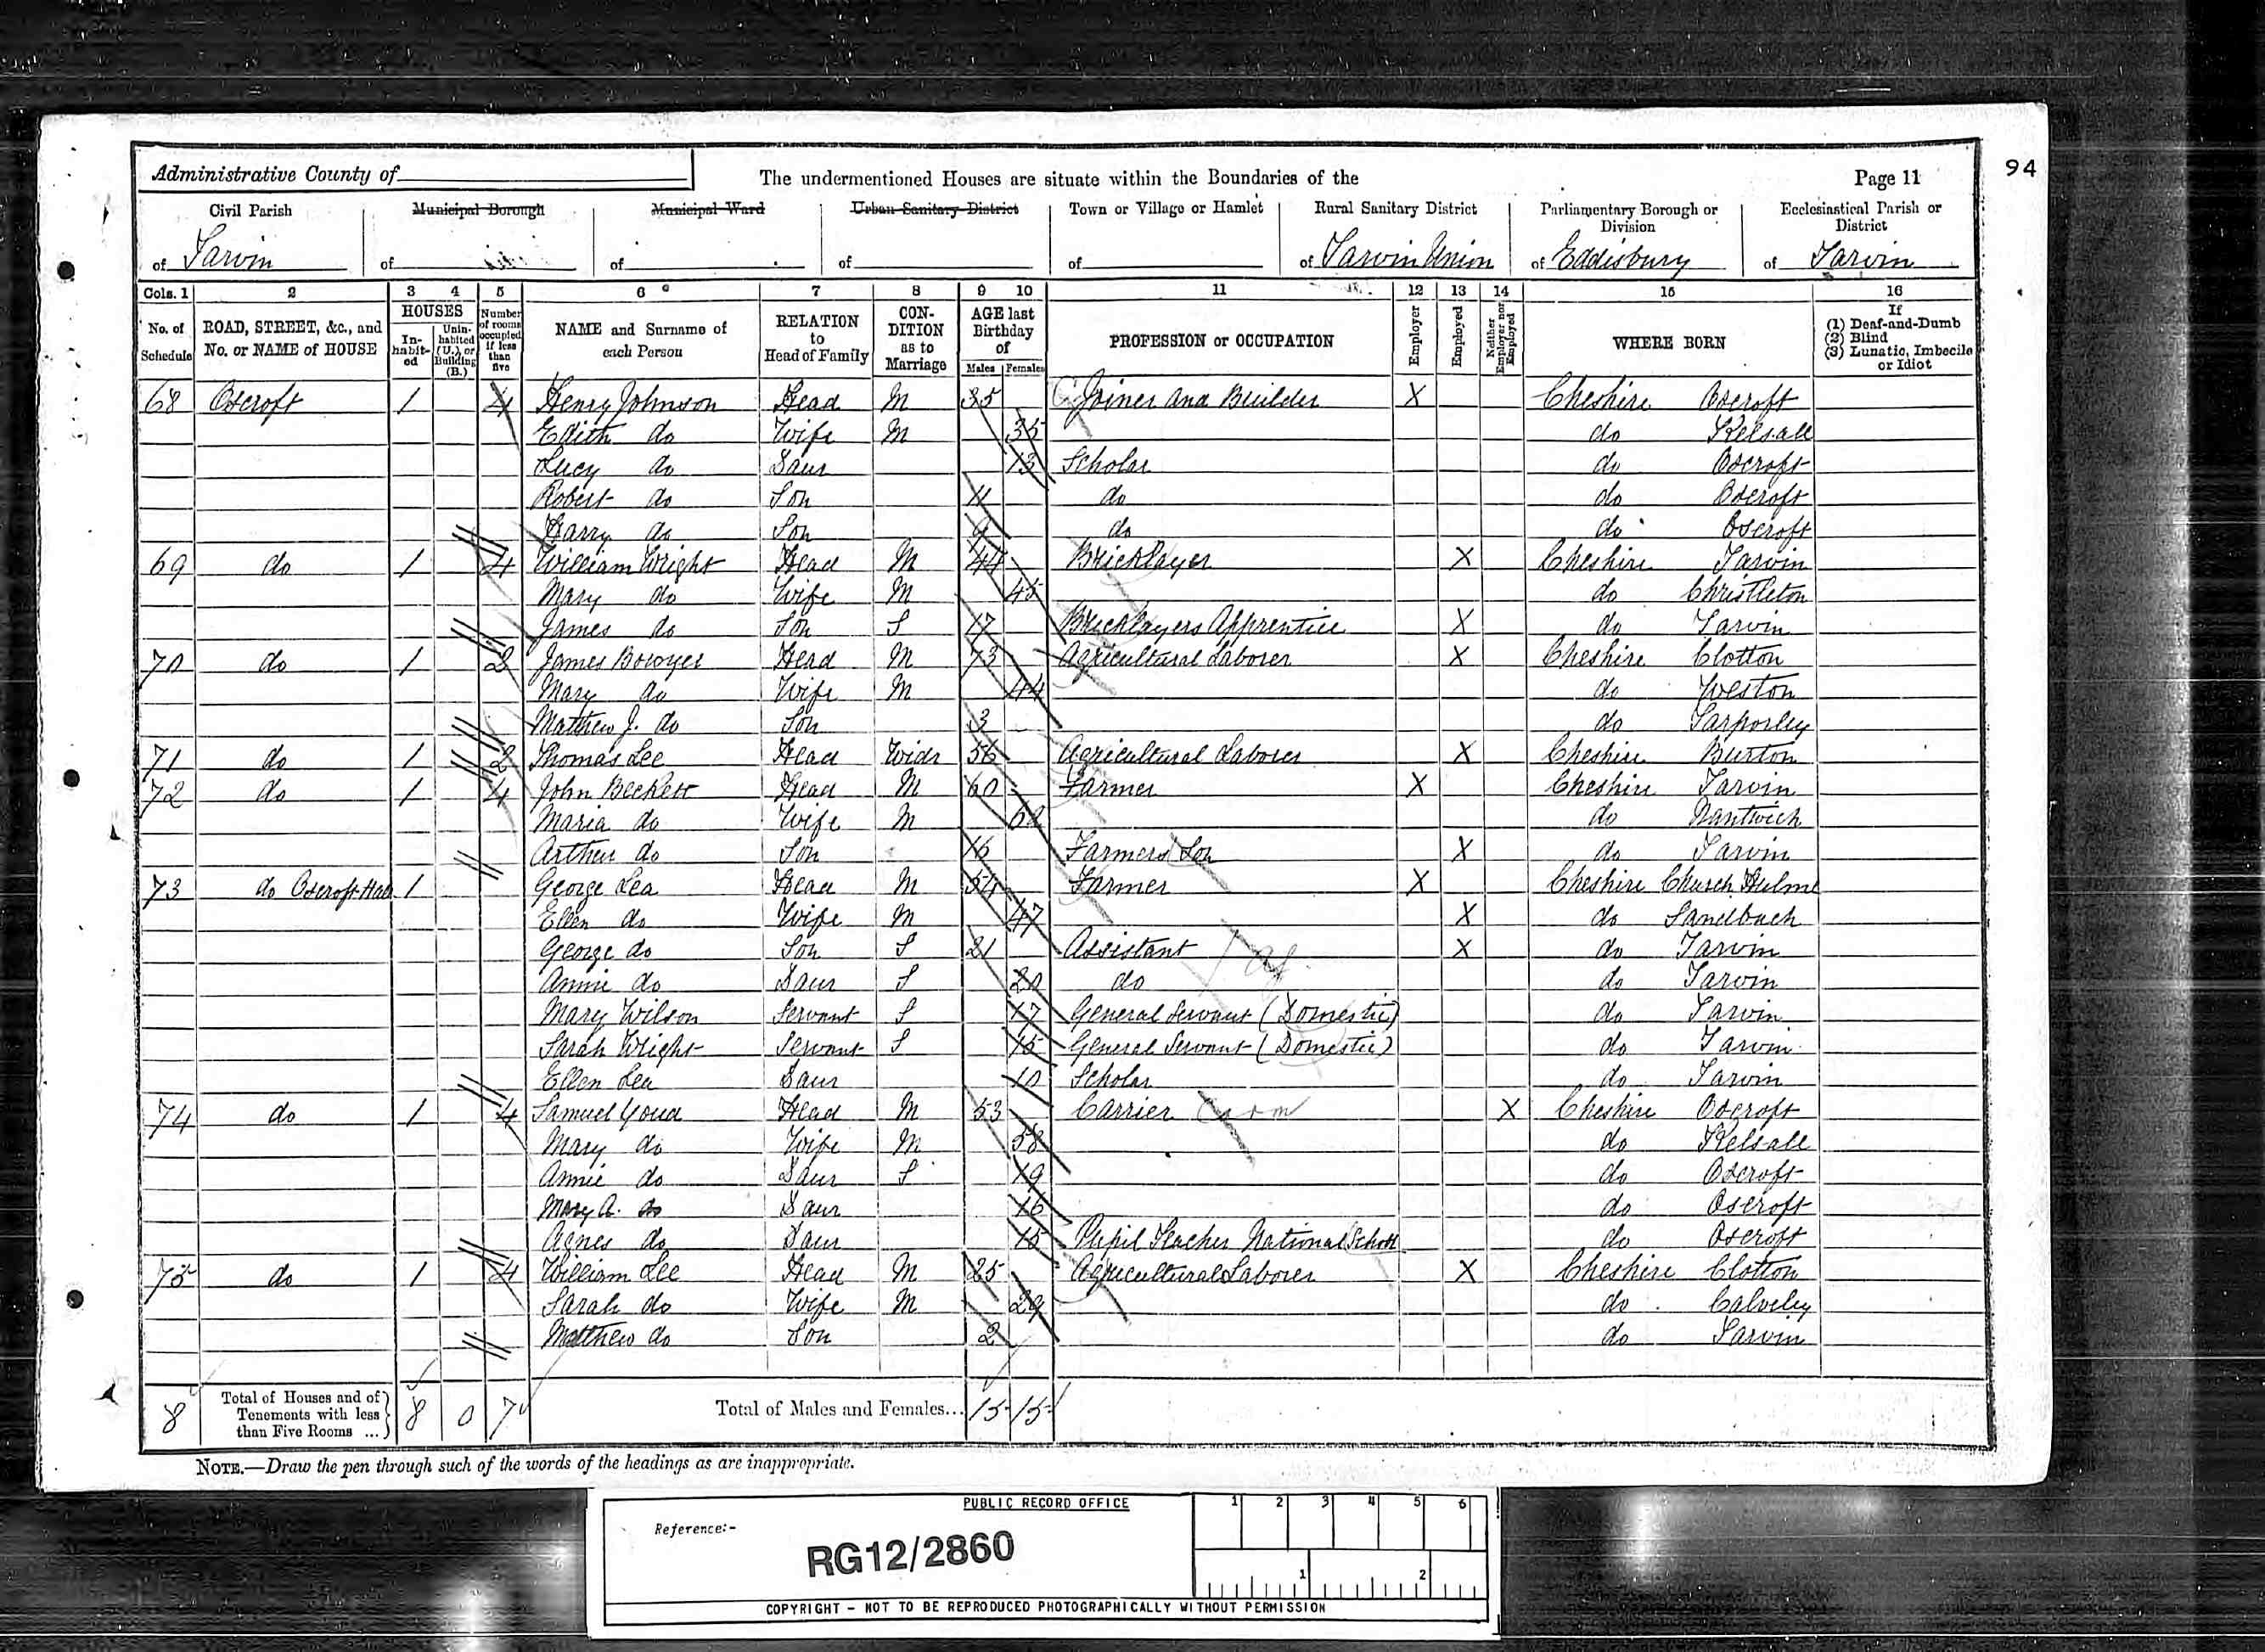 94
Administrative County of
The undermentioned Houses are situate within the Boundaries of the
Page 11
Civil Parish
Municipal Borough
Municipal Ward
Urban Sanitary District
Town or Village or Hamlet
Rural Sanitary District
Parliamentary Borough or Division
Ecclesiastical Parish or District
of Tarvin of of of of of Tarvin Union of Eddisbury of Tarvin
Cols. 1 2 3 4 5 6 7 8 9 10 11 12 13 14 15 16
No. of Schedule
ROAD, STREET, &c., and No. or NAME of HOUSE
HOUSES
In-habit-ed
Unin-habited (U.), or Building (B.)
Number of rooms occupied if less than five
NAME and Surname of each Person
RELATION to Head of Family
CON-DITION as to Marriage
AGE last Birthday of
Males Females
PROFESSION or OCCUPATION
Employer
Employed
Neither Employer nor Employed
WHERE BORN
If
(1) Deaf-and-Dumb
(2) Blind
(3) Lunatic, Imbecile or Idiot
68 Oscroft 1 4 Henry Johnson Head M 35 Joiner and Builder X Cheshire Oscroft
Edith do Wife M 35 do Kelsall
Lucy do Daur 13 Scholar do Oscroft
Robert do Son 11 do do Oscroft
Harry do Son 9 do do Oscroft
69 do 1 4 William Wright Head M 44 Bricklayer X Cheshire Tarvin
Mary do Wife M 45 do Christleton
James do Son S 17 Bricklayers Apprentice X do Tarvin
70 do 1 2 James Bowyer Head M 73 Agricultural Laborer X Cheshire Clotton
Mary do Wife M 44 do Weston
Matthew J. do Son 3 do Tarporley
71 do 1 2 Thomas Lee Head Widr 56 Agricultural Laborer X Cheshire Burton
72 do 1 4 John Beckett Head M 60 Farmer X Cheshire Tarvin
Maria do Wife M 62 do Nantwich
Arthur do Son 16 Farmers Son X do Tarvin
73 do Oscroft Hall 1 George Lea Head M 54 Farmer X Cheshire Church Hulme
Ellen do Wife M 47 X do Sandbach
George do Son S 21 Assistant X do Tarvin
Annie do Daur S 20 do do Tarvin
Mary Wilson Servant S 17 General Servant (Domestic) do Tarvin
Sarah Wright Servant S 15 General Servant (Domestic) do Tarvin
Ellen Lea Daur 10 Scholar do Tarvin
74 do 1 4 Samuel Youd Head M 53 Carrier X Cheshire Oscroft
Mary do Wife M 58 do Kelsall
Annie do Daur S 19 do Oscroft
Mary A. do Daur 16 do Oscroft
Agnes do Daur 15 Pupil Teacher National School do Oscroft
75 do 1 4 William Lee Head M 25 Agricultural Laborer X Cheshire Clotton
Sarah do Wife M 29 do Calveley
Matthew do Son 2 do Tarvin
8 Total of Houses and of Tenements with less than Five Rooms ... 8 0 7 Total of Males and Females... 15 15
NOTE.—Draw the pen through such of the words of the headings as are inappropriate.
PUBLIC RECORD OFFICE
1 2 3 4 5 6
Reference:-
RG12/2860
1 2
COPYRIGHT - NOT TO BE REPRODUCED PHOTOGRAPHICALLY WITHOUT PERMISSION